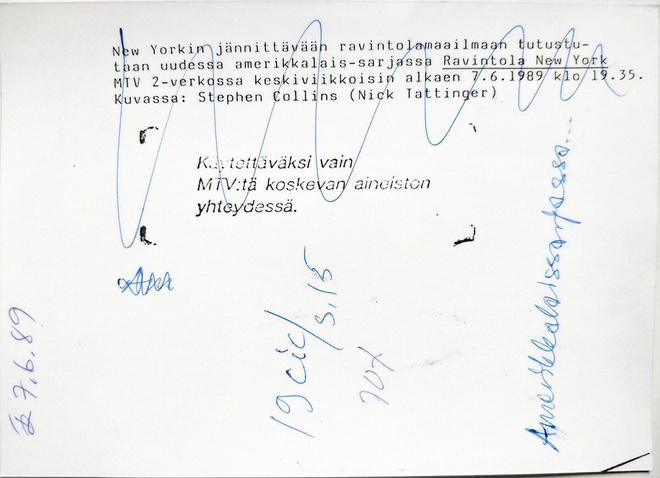 New Yorkin jännittävään ravintolamaailmaan tutustu-
taan uudessa amerikkalais-sarjassa Ravintola New York
MTV 2-verkossa keskiviikkoisin alkaen 7.6.1989 klo 19.35.
Kuvassa: Stephen Collins (Nick Tattinger)
Käytettäväksi vain
MTV:tä koskevan aineiston
yhteydessä.
7.6.89
19 cic/
5.15
70x
Amerikkalaissarjassa...